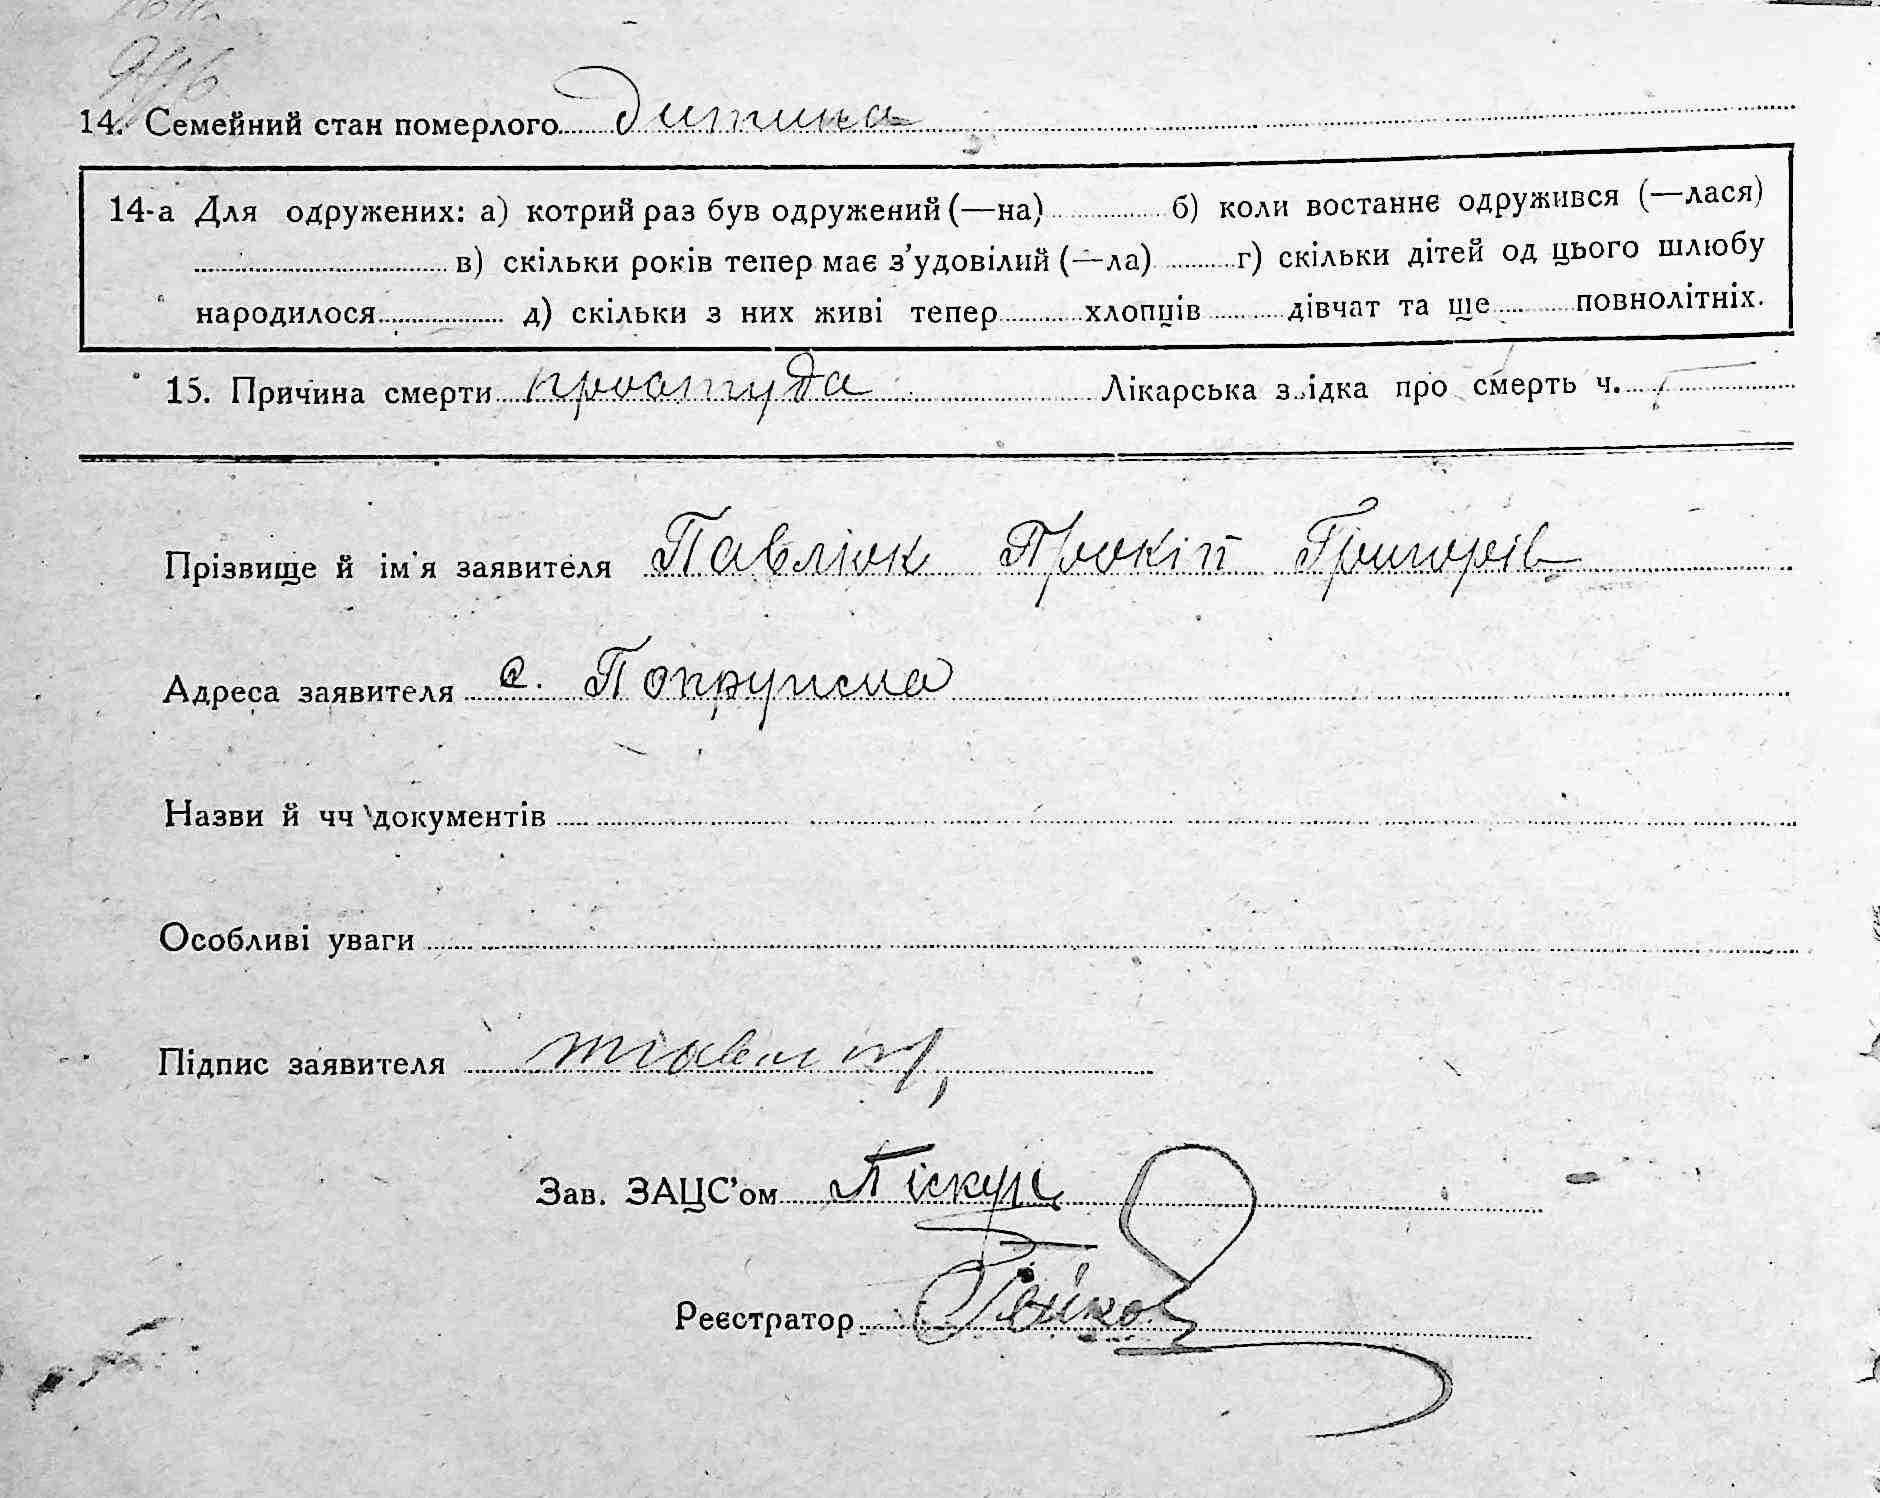 14. Семейний стан померлого дитина
14-а Для одружених: а) котрий раз був одружений (—на) б) коли востаннє одружився (—лася)
в) скільки років тепер має з’удовілий (—ла) г) скільки дітей од цього шлюбу
народилося д) скільки з них живі тепер хлопців дівчат та ще повнолітніх.
15. Причина смерти простуда Лікарська з ідка про смерть ч.
Прізвище й ім'я заявителя Павлюк Прокіп Григорів
Адреса заявителя с. Попружна
Назви й чч документів
Особливі уваги
Підпис заявителя
Зав. ЗАЦС’ом Піскун
Реєстратор